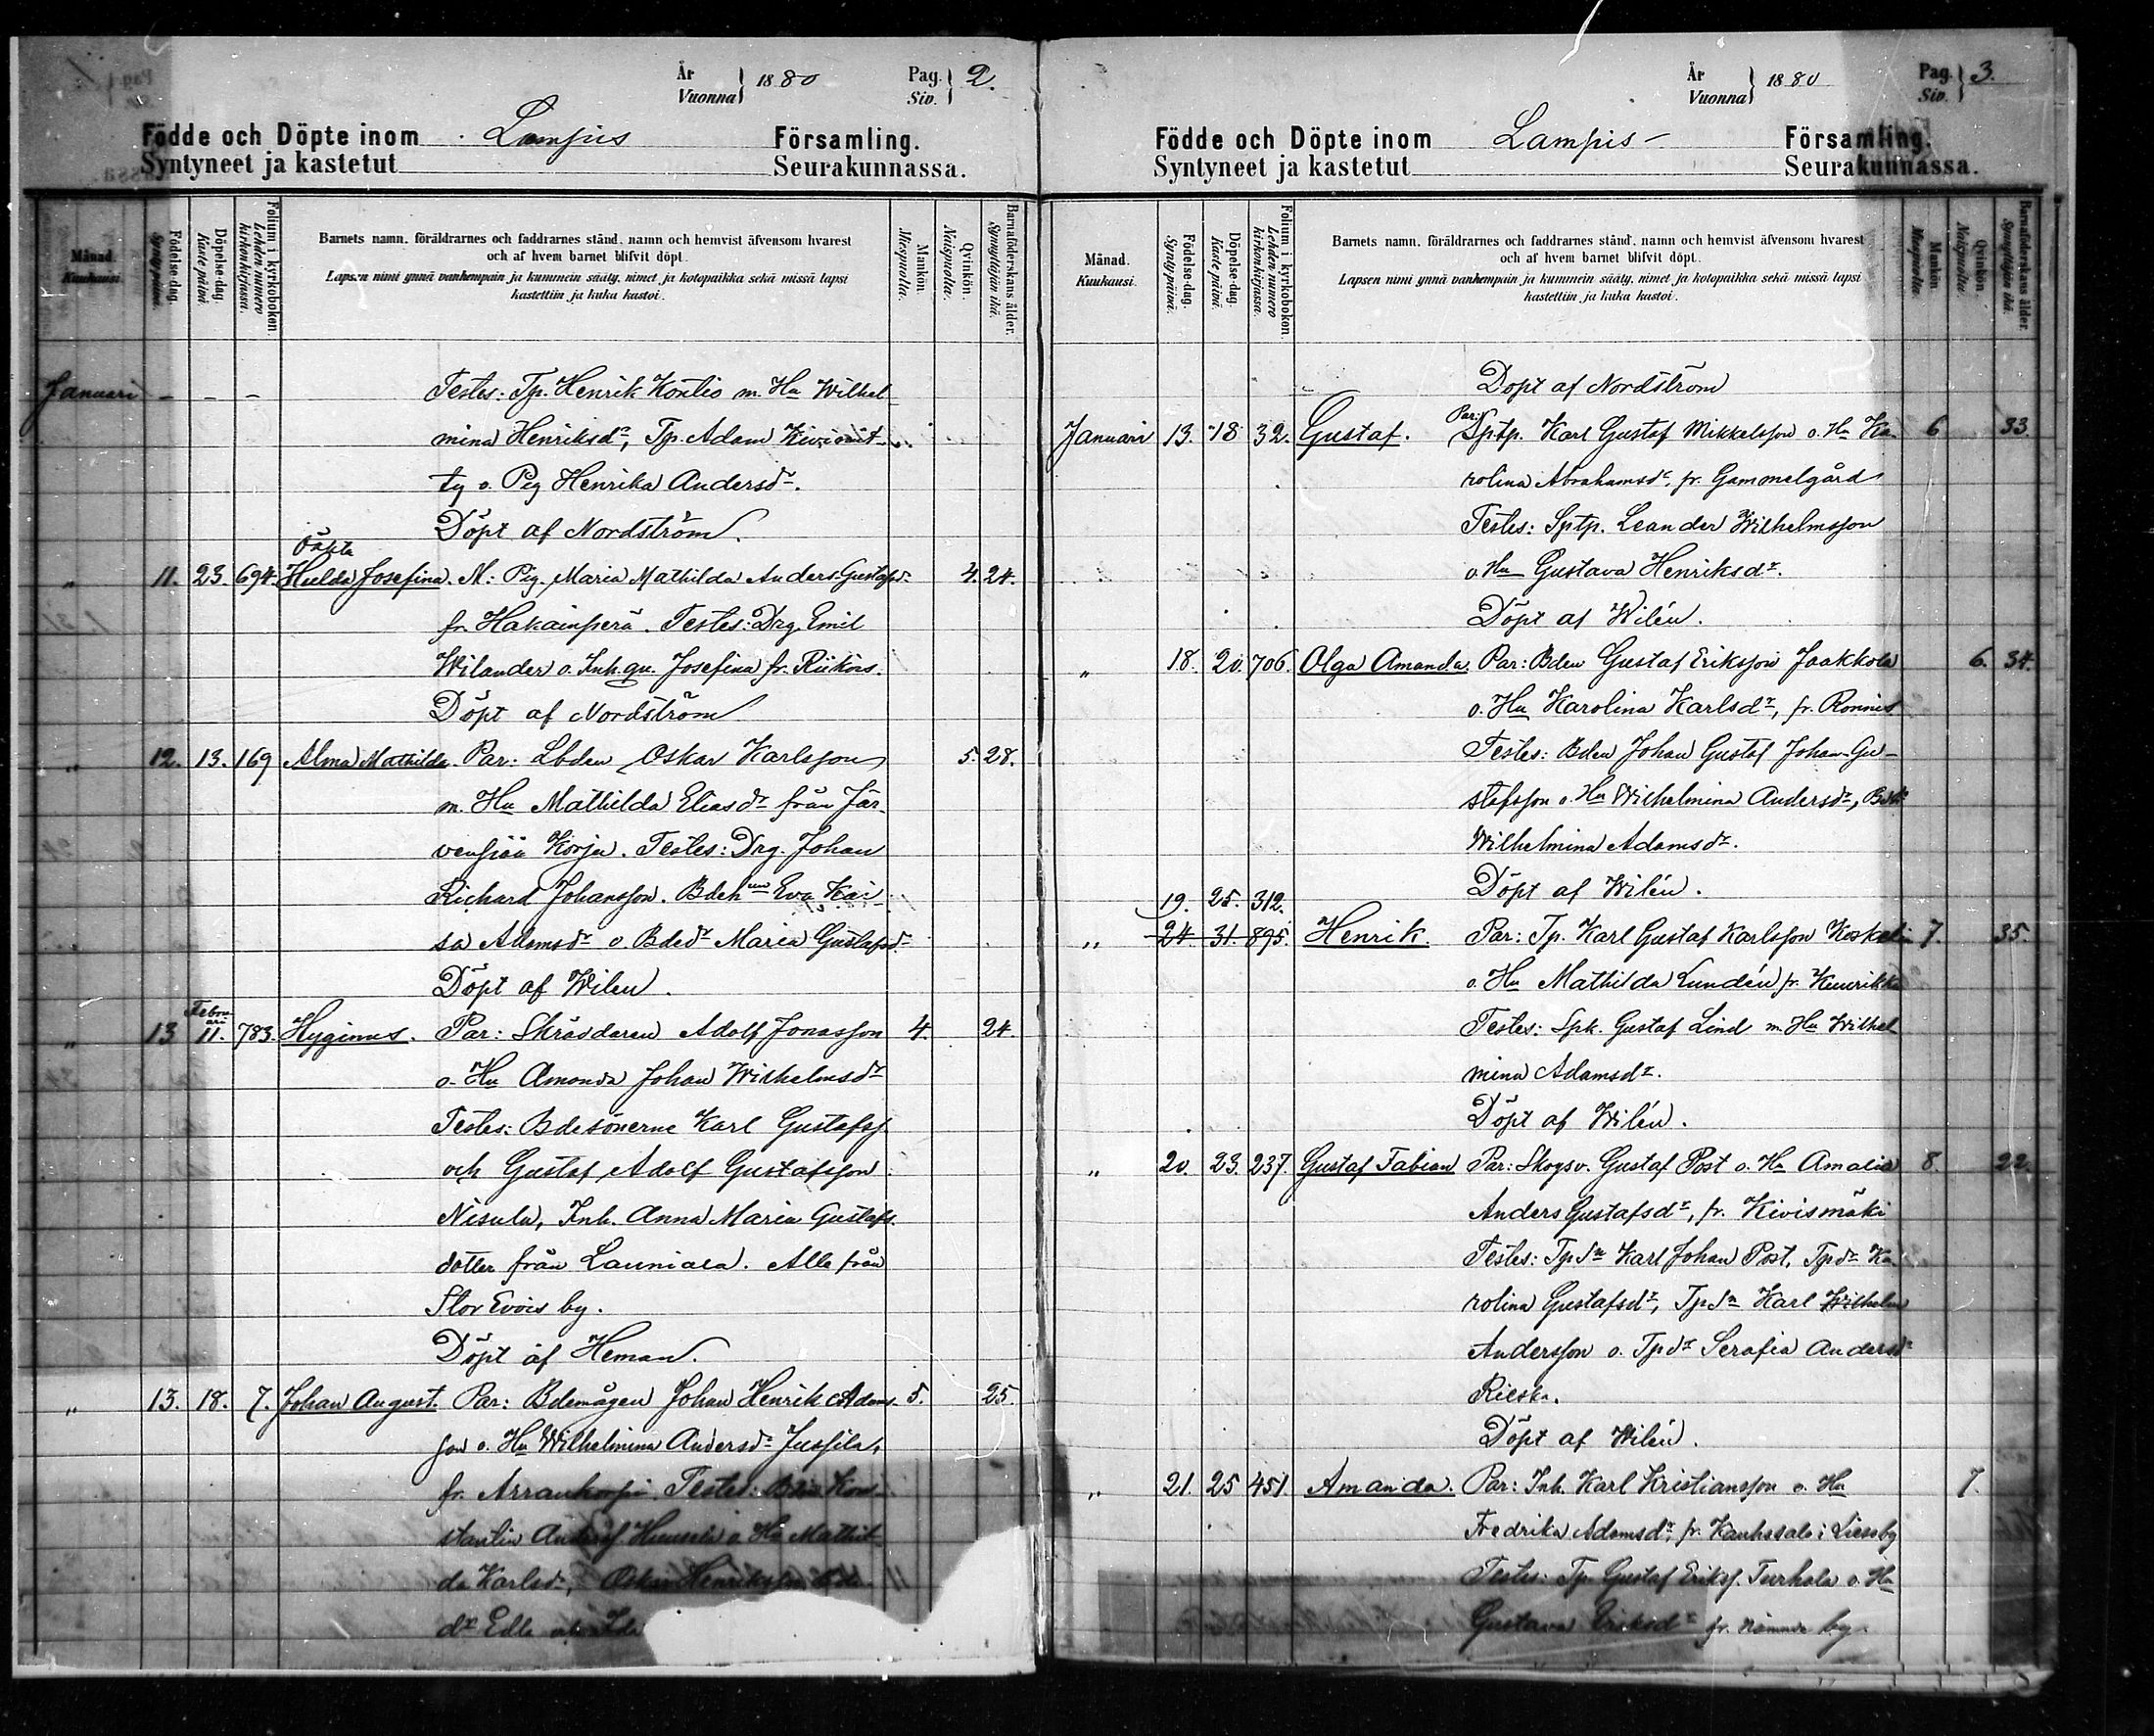 År
Vuonna
1880
Pag. 2.
Siv.
Födde och Döpte inom Lampis Församling.
Syntyneet ja kastetut Seurakunnassa.
Månad.
Kuukausi.
Födelse-dag.
Syntypäivä.
Döpelse-dag.
Kaste päivä.
Folium i kyrkoboken.
Lehden numero kirkonkirjassa.
Barnets namn, föräldrarnes och faddrarnes stånd, namn och hemvist äfvensom hvarest
och af hvem barnet blifvit döpt.
Lapsen nimi ynnä vanhempain ja kummein sääty, nimet ja kotopaikka sekä missä lapsi
kastettiin ja kuka kastoi.
Mankön.
Miespuolta.
Qvinkön.
Naispuolta.
Barnaföderskans ålder.
Synnyttäjän ikä.
Januari - - - Testes: Tp. Henrik Kontio m. Hu Wilhel
mina Henriksdr, Tp. Adam
ty o. Pig Henrika Andersdr.
Döpt af Nordström.
Oäkta
" 11. 23. 694. Hulda Josefina. M: Pig. Maria Mathilda Anders Gustafsdr 4. 24.
fr. Hakainperä. Testes: Drg Emil
Wilander o. Inh. qu. Josefina fr.
Döpt af Nordström
" 12. 13. 169 Alma Mathilda. Par: Lbden Oskar Karlsson 5. 28.
m. Hu Mathilda Eliasdr från Jär-
venpää Korju. Testes: Drg. Johan
Richard Johansson. Bdeh Eva Kai
sa Adamsdr o Bdedr Maria Gustafsdr
Döpt af Wilen.
Februari
" 13 11. 783. Hyginus. Par: Skräddaren Adolf Jonasson 4. 24.
o. Hu Amanda Johan Wilhelmsdr
Testes: Bdesönerne Karl Gustafss.
och Gustaf Adolf Gustafsson
Nisula, Inh. Anna Maria Gustafs
dotter från Launiala. Alla från
Stor Evois by.
Döpt af Heman.
" 13. 18. 7. Johan August. Par: Bdemågen Johan Henrik Adams- 5. 25.
son o. Hu Wilhelmina Andersdr Jussila,
fr. Arrankorpi. Testes: Kon
stantin o Hu Mathil
da Karlsdr, Oskar Henriksson
dr Edla
År
Vuonna
1880
Pag. 3.
Siv.
Födde och Döpte inom Lampis - Församling.
Syntyneet ja kastetut Seurakunnassa.
Månad.
Kuukausi.
Födelse-dag.
Syntypäivä.
Döpelse-dag.
Kaste päivä.
Folium i kyrkoboken.
Lehden numero kirkonkirjassa.
Barnets namn, föräldrarnes och faddrarnes stånd, namn och hemvist äfvensom hvarest
och af hvem barnet blifvit döpt.
Lapsen nimi ynnä vanhempain ja kummein sääty, nimet ja kotopaikka sekä missä lapsi
kastettiin ja kuka kastoi.
Mankön.
Miespuolta.
Qvinkön.
Naispuolta.
Barnaföderskans ålder.
Synnyttäjän ikä.
Döpt af Nordström
Januari 13. 18 32. Gustaf. Par: Sptp. Karl Gustaf Mikkelsson o. Hu Ka- 6 33.
rolina Abrahamsdr, fr. Gammelgård
Testes: Sptp. Leander Wilhelmsson
o Hu Gustava Henriksdr.
Döpt af Wilén.
" 18. 20. 706. Olga Amanda. Par: Bden Gustaf Eriksson Jaakkola 6. 34.
o. Hu Karolina Karlsdr, fr. Ronnis
Testes: Bden Johan Gustaf Johan Gu-
stafsson o. Hu Wilhelmina Andersdr, Bdedr
Wilhelmina Adamsdr.
Döpt af Wilén.
19. 25. 312.
" 24 31. 895. Henrik. Par: Tp. Karl Gustaf Karlsson Koskelin 7. 35.
o. Hu Mathilda Lundén fr.
Testes: Spk. Gustaf Lind m. Hu Wilhel
mina Adamsdr.
Döpt af Wilén.
" 20. 23. 237. Gustaf Fabian Par: Skogsv. Gustaf Post o. Hu Amalia 8. 22.
Anders Gustafsdr, fr. Kivismäki
Testes: Tp Sn Karl Johan Post, Tpdr Ka
rolina Gustafsdr, Tp Sn Karl Wilhelm
Andersson o. Tpdr Serafia Andersdr
Rieska.
Döpt af Wilén.
" 21. 25 451 Amanda. Par: Inh. Karl Kristiansson o. Hu 7.
Fredrika Adamsdr, fr. Kauhssalo i Lieso by
Testes: Tp. Gustaf Eriks. Turhala o. Hu
Gustava Eriksdr fr. nämnde by.